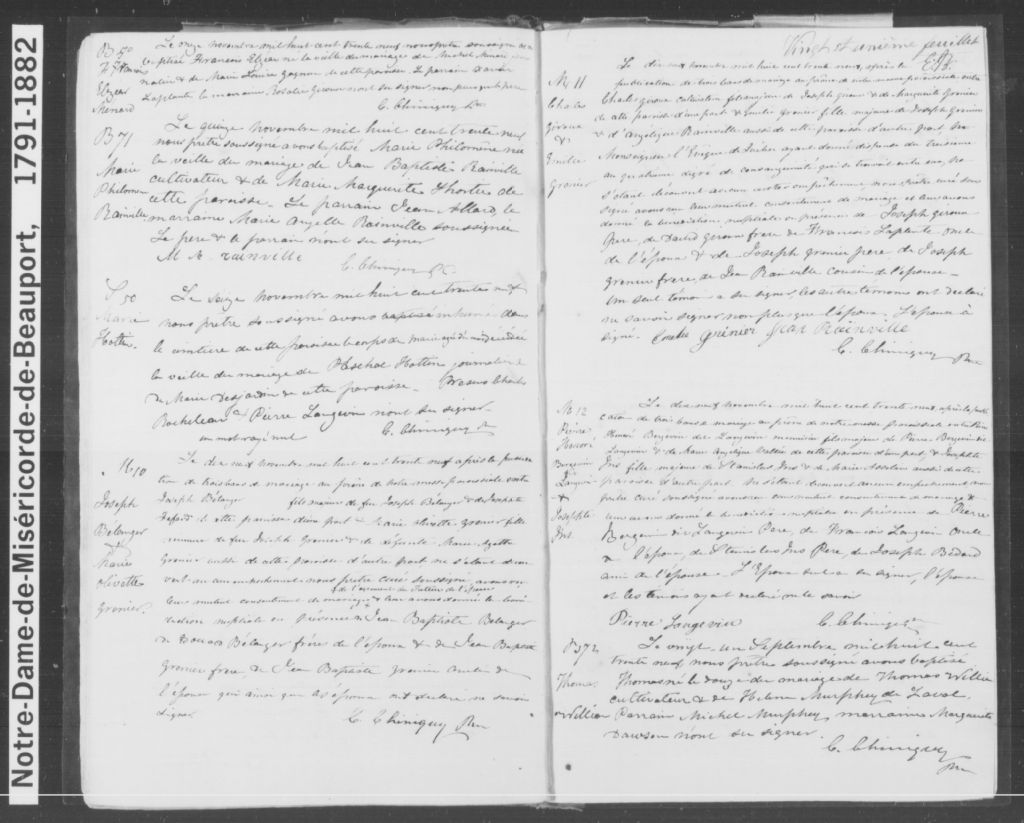 Notre-Dame-de-Miséricorde-de-Beauport, 1791-1882
B 70
Le onze novembre mil huit cent trente neuf nous prêtre soussigné avons
baptisé François Elzear né la veille du mariage de Michel
& de Marie Louise gagnon de cette paroisse. Le parrain
Laplante la marraine Rosalie Giroux n'ont su signer
C. Chiniquy Ptr
B 71
Marie
Philomene
Rainville
Le quinze novembre mil huit cent trente neuf
nous prêtre soussigné avons baptisé Marie Philomène née
la veille du mariage de Jean Baptiste Rainville
cultivateur & de Marie Marguerite de
cette paroisse. Le parrain Jean Allard, la
marraine Marie Angelle Rainville soussignée
Le père & le parrain n'ont su signer
M A rainville
C. Chiniquy Ptr
S 50
Marie
Hottin
Le Seize novembre mil huit cent trente neuf
nous prêtre soussigné avons baptisé inhumé dans
le cimetière de cette paroisse le corps de marie décédée
la veille du mariage de Paschal Hottin journalier &
de Marie Desjardin de cette paroisse. Presens Charles
Rocheleau & Pierre Langevin n'ont su signer
un mot rayé nul
C. Chiniquy Ptr
M 10
Joseph
Bélanger
&
Marie
olivette
Grenier
Le dix neuf novembre mil huit cent trente neuf après la publica
tion de trois bans de mariage au prône de notre messe paroissiale entre
Joseph Bélanger fils majeur de feu Joseph Bélanger & de Josephte
de cette paroisse d'une part & Marie olivette grenier fille
mineure de feu Joseph Grenier & de défunte Marie
Grenier aussi de cette paroisse d'autre part ne s'étant décou
vert aucun empechement nous prêtre curé soussigné avons reçu
& de l'agrément du Tuteur de l'épouse
leur mutuel consentement de mariage & leur avons donné la béné
diction nuptiale en présence de Jean Baptiste Bélanger
de Bélanger frères de l'époux & de Jean Baptiste
grenier frère, de Jean Baptiste grenier oncle de
l'épouse qui ainsi que les époux ont déclaré ne savoir
signer.
C. Chiniquy Ptr
Vingt et unième feuillet
M 11
Charles
Giroux
&
Emilie
Grenier
Le dix neuf novembre mil huit cent trente neuf, après la
publication de trois bans de mariage au prône de notre messe paroissiale entre
Charles giroux cultivateur fils majeur de Joseph giroux & de Marguerite Grenier
de cette paroisse d'une part & Emilie grenier fille majeure de Joseph Grenier
& d'Angelique Rainville aussi de cette paroisse d'autre part.
Monseigneur l'Evêque de Québec ayant donné dispense du troisième
au quatrième degré de consanguinité qui se trouvait entre eux, ne
s'étant découvert aucun autre empêchement, nous Prêtre curé sous
signé avons reçu leur mutuel consentement de mariage et leur avons
donné la bénédiction nuptiale en présence de Joseph giroux
père, de David giroux frère de François Laplante oncle
de l'époux & de Joseph grenier père, de Joseph
grenier frère, de Jean Rainville cousin de l'épouse
Un seul témoin a su signer, les autres témoins ont déclaré
ne savoir signer non plus que l'époux. L'épouse à
signé. Emilie Grenier Jean Rainville
C. Chiniquy Ptr
M 12
Pierre
Honoré
Bergevin
Langevin
&
Josephte
Ins
Le dix neuf novembre mil huit cent trente neuf, après la publi
cation de trois bans de mariage au prône de notre messe paroissiale entre Pierre
Honoré Bergevin dit Langevin menuisier fils majeur de Pierre Bergevin dit
Langevin & de Marie Angelique Vallée de cette paroisse d'une part, & Josephte
Ins fille majeure de Stanislas Ins & de Marie aussi de cette
paroisse d'autre part. Ne s'étant découvert aucun empêchement nous
prêtre curé soussigné avons reçu leur mutuel consentement de mariage &
leur avons donné la bénédiction nuptiale en présence de Pierre
Bergevin dit Langevin Père, de François Langevin Oncle
de l'époux, de Stanislas Ins Père, de Joseph Bédard
ami de l'épouse. L'époux seul a su signer, l'épouse
et les témoins ayant déclaré ne le savoir
Pierre Langevin C. Chiniquy Ptr
B 72
Thomas
Willie
Le vingt un Septembre mil huit cent
trente neuf nous prêtre soussigné avons baptisé
Thomas né le douze du mariage de Thomas Willie
cultivateur & de Helene Murphey de Laval
Parrain Michel Murphey, marraine Marguerite
Dawson n'ont su signer
C. Chiniquy
Ptr